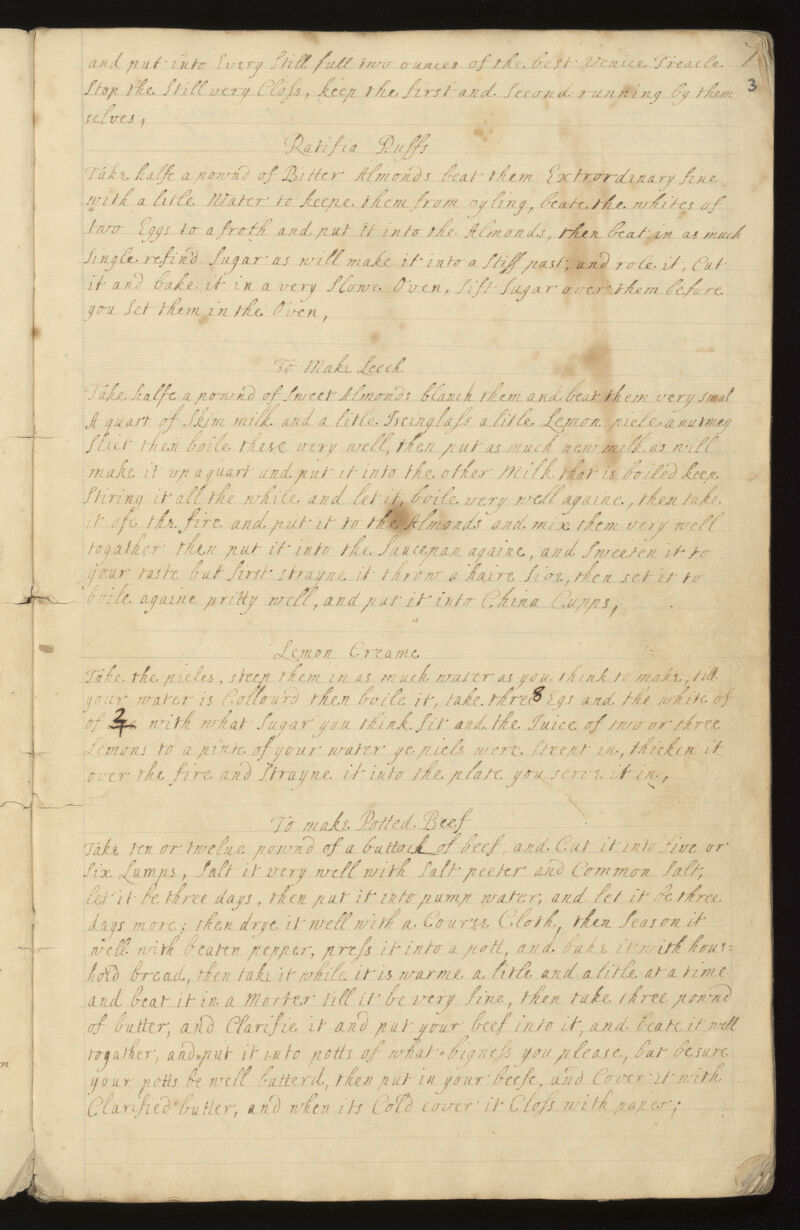 7
3
and put into Every Still full two ounces of the best Venice Treacle
Stop the Still very Closs, keep the first and Second running by them
selves,
Ratifia Puffs
Take halfe a pownd of Bitter Almonds beat them Extrordinary fine
with a litle Water to keepe them from oyling, beate the whites of
two Eggs to a froth and put it into the Almonds, then beat in as much
Single refind Sugar as will make it into a Stiff past, and role it, Cut
it and bake it in a very Slowe Oven, Sift Sugar over them before
you Set them in the Oven,
To Make Leech
Take halfe a pownd of Sweet Almonds blanch them and beat them very smal
A quart of Skim milk and a litle Iseinglass a litle Lemon piele a nutmeg
Slict then boile these very well, then put as much new milk as will
make it vp a quart and put it into the other Milk that is boiled keep
Stiring it all the while and let it boile very well againe, then take
it ofe the fire and put it to the Almonds and mix them very well
togather then put it into the Saucepan againe, and Sweeten it to
your taste but first strayne it throw a haire Sive, then set it to
boile againe pritty well, and put it into China Cupps,
Lemon Creame
Take the pieles, steep them in as much water as you think to make, till
your water is Collourd then boile it, take three 8 Egs and the white of
of 2 with what Sugar you think fit and the Juice of two or three
Lemons to a pinte of your water ye piels were Steept in, thicken it
over the fire and Strayne it into the plate you serve it in,
To make Potted Beef
Take ten or twelve pownd of a buttock of beef, and Cut it into five or
Six Lumps, Salt it very well with Salt peeter and Common Salt,
let it be three days, then put it into pump water, and let it be three
days more; then drye it well with a Course Cloth, then Season it
well with beaten pepper, press it into a pott, and bake it with hous=
hold bread, then take it while it is warme a litle and a litle at a time
and beat it in a Morter till it be very fine, then take three pownd
of butter, and Clarifie it and put your beef into it, and beate it well
togather, and put it into potts of what bigness you please, but be sure
your potts be well butterd, then put in your beefe, and Cover it with
Clarified butter, and when its Cold cover it Closs with paper;